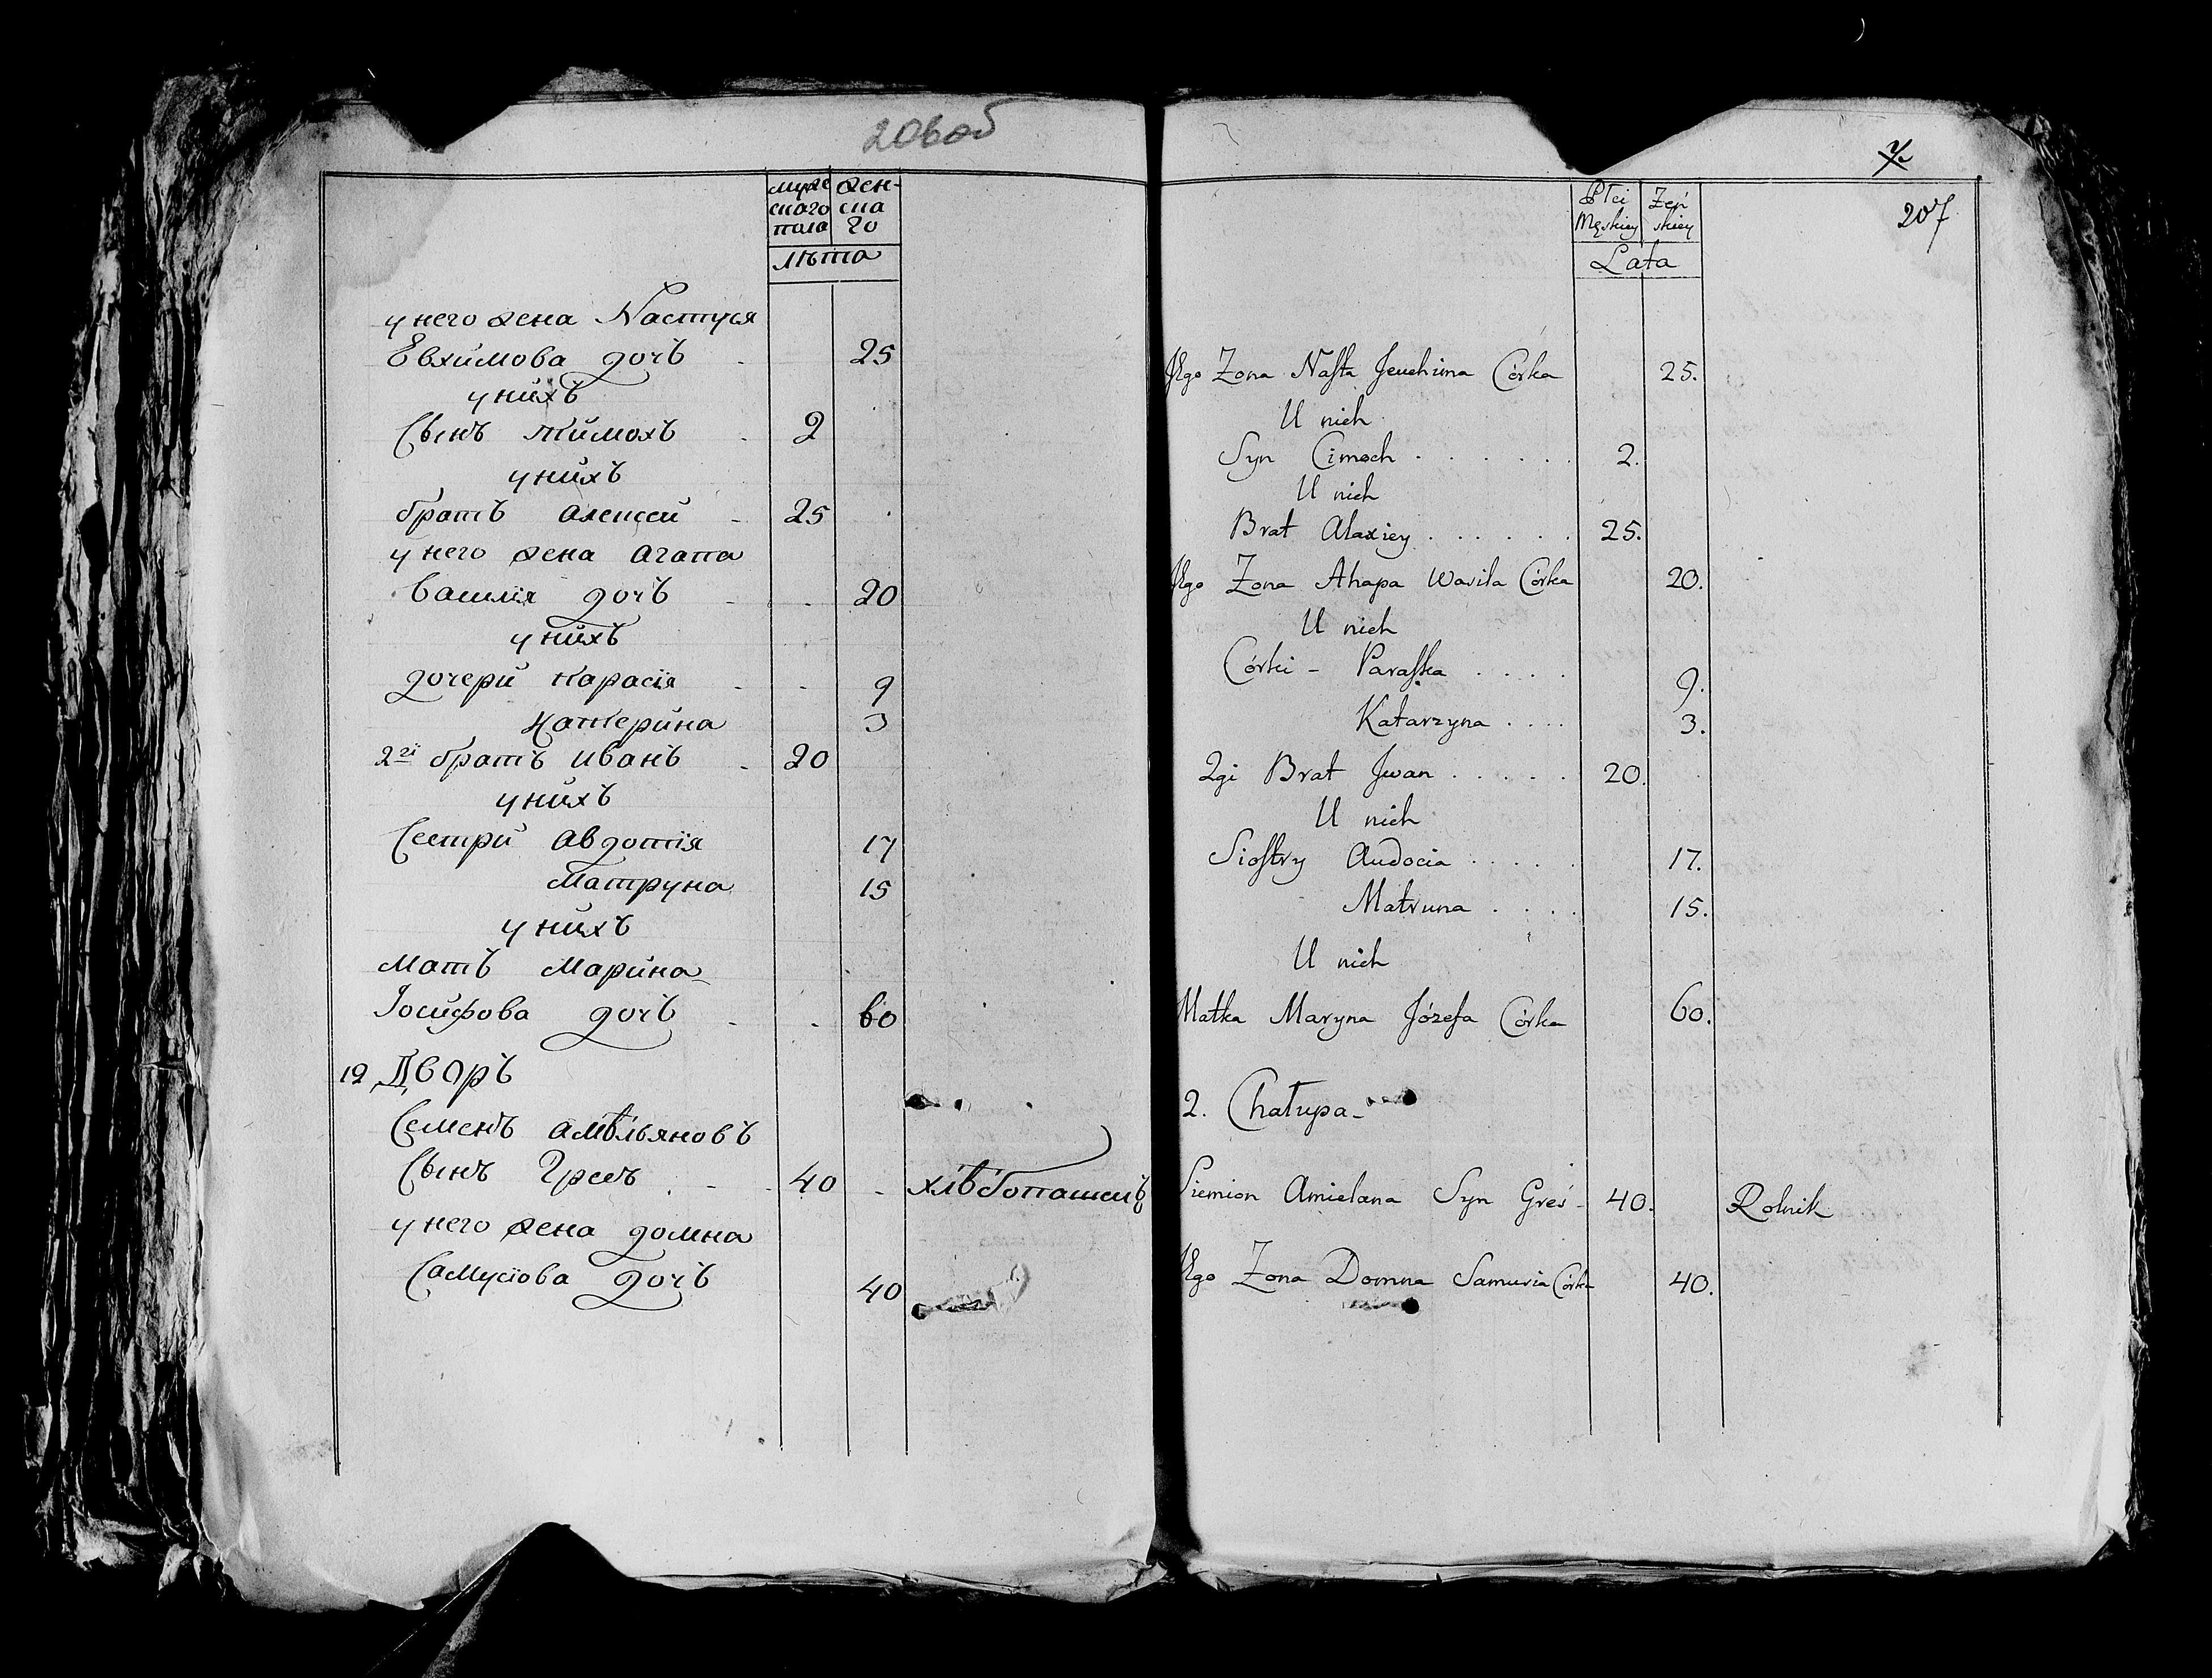 206об
муже жен-
скаго ска
пола го
лѣта
у него жена Nастуся
Евхимова дочь 25
у нихъ
Сынъ тимохъ 2
у нихъ
братъ алексей 25
у него жена агапа
Вашля дочь 20
у нихъ
дочери парасія 9
катерина 3
2гi братъ иванъ 20
у нихъ
Сестри авдотія 17
матруна 15
у нихъ
мать марина
Іосифова дочь 60
12 Дворъ
Семенъ амѣльяновъ
Сынъ Гресь 40 хлѣбопашецъ
у него жена домна
Самусіова дочь 40
207
Płci Żeń
Męskiey skiey
Lata
Jego Zona Nasta Jeuchima Córka 25.
U nich
Syn Cimoch . . . . . . 2.
U nich
Brat Alaxiey . . . . . . 25.
Jego Zona Ahapa Wasila Córka 20.
U nich
Córki - Paraska . . . . 9.
Katarzyna . . . . 3.
2gi Brat Jwan . . . . . 20.
U nich
Siostry Audocia . . . . . 17.
Matruna . . . . 15.
U nich
Matka Maryna Józefa Córka 60.
2. Chałupa
Siemion Amielana Syn Greś 40. Rolnik
Jego Zona Domna Samusia Córka 40.